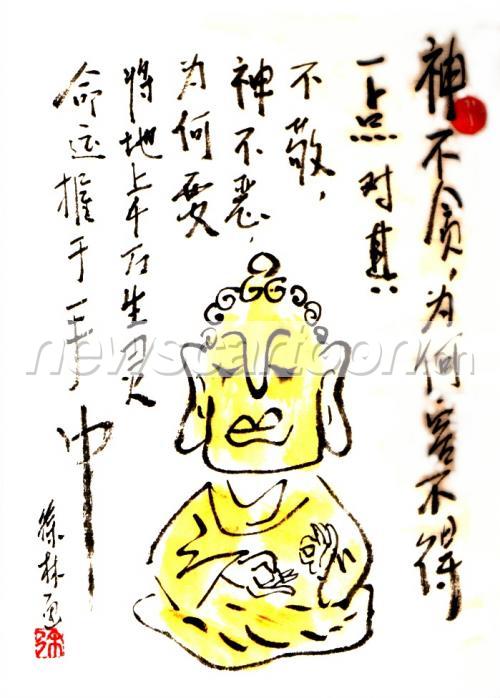 神不贪，为何容不得
一点对其
不敬，
神不恶，
为何要
将地上千万生灵
命运握于手中
newscartoon.cn